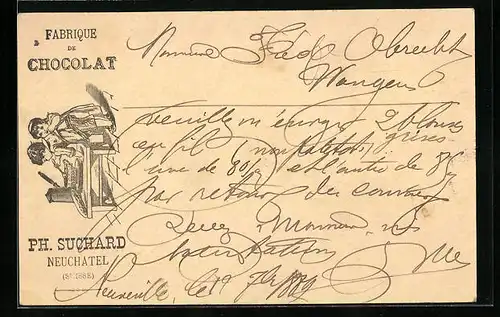 FABRIQUE
DE
CHOCOLAT
PH. SUCHARD
NEUCHATEL
(SUISSE)
Monsieur Fréd Obrecht
Wangen
Veuillez m'envoyer 2 blouses
grises
l'une de 80/ et l'autre de 85
par retour du courrier
Recevez Monsieur mes
Salutations
Neuveville, le 19 7bre 1889